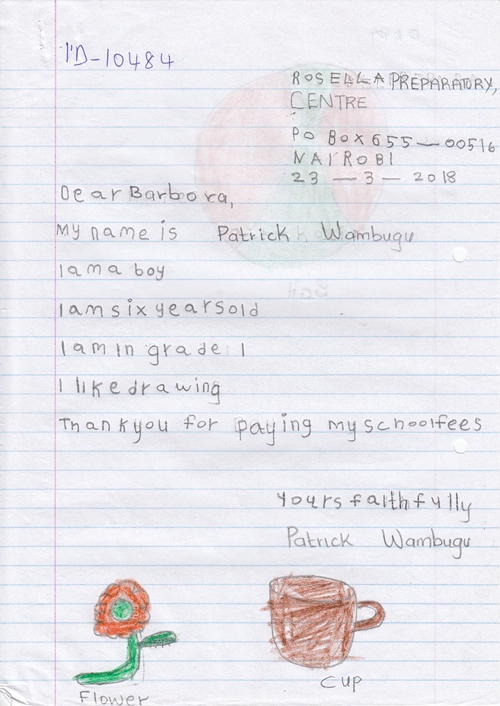 I'D-10484
ROSELLA PREPARATORY,
CENTRE
PO BOX 655 — 00516
NAIROBI
23 — 3 — 2018
Dear Barbora,
My name is Patrick Wambugu
I am a boy
I am six years old
I am in grade 1
I like drawing
Thankyou for paying my schoolfees
Yours faithfully
Patrick Wambugu
Flower
Cup